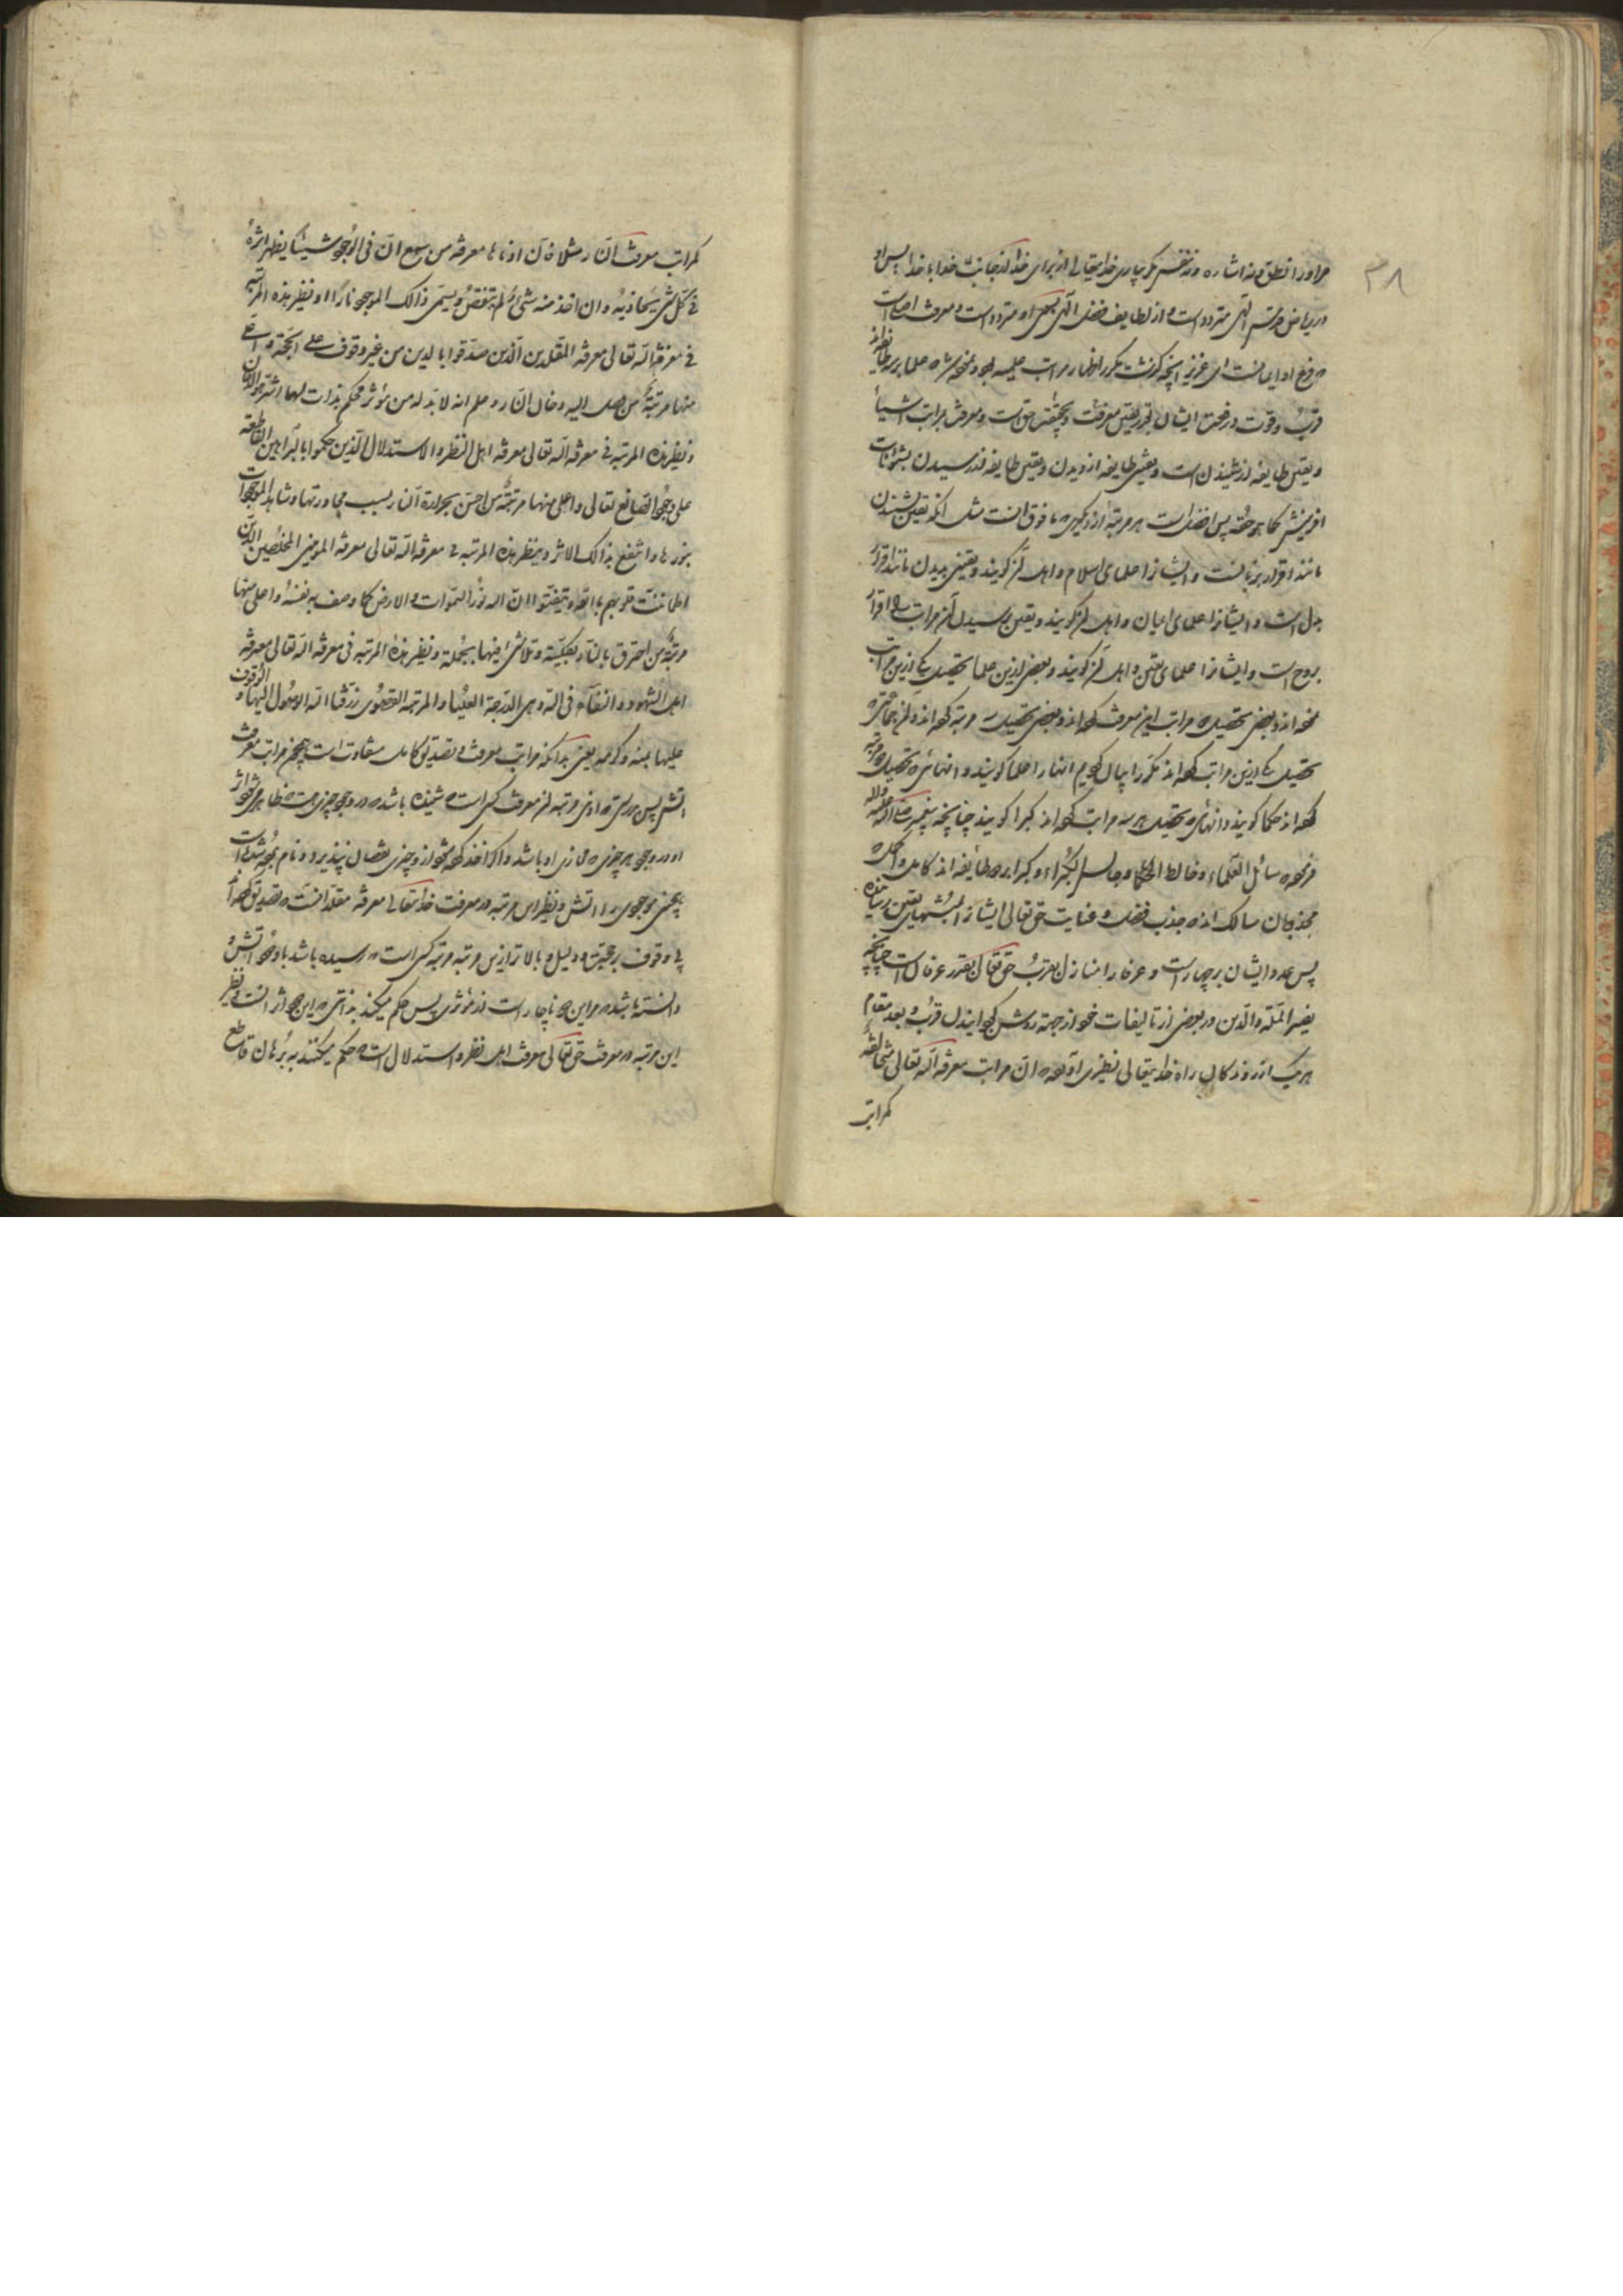 ۳۸
مر او را نطق و نه اشاره و نه نفس مگر چاری خدایتعالی از برای خدا از جانب خدا با خدا پس او
در ریاض قدس الهی متردد است و از لطایف فضل الهی بسوی او متردد است و معرفت اصل است
و فرع او ایمانست ای عزیز آنچه گذشت مکرر اظهار مراتب علمیه بود و نمیشود علما بر سه طایفه اند
قرب و قوت در رفعت ایشان بقدر یقین معرفت و بحقیقت حق است و معرفت بمراتب اشیا
و یقین طایفه از شنیدن است و یقین طایفه از دیدن و یقین طایفه از رسیدن بشئونات
آفرینش کما هو حقه پس افضل است هر مرتبه از دیگری که مافوق آنست مثل آنکه یقین شنیدن
مانند اقرار بزبانست و ایشانرا علمای اسلام و اهل گویند و یقین بدیدن مانند اقرار
بدل است و ایشانرا علمای ایمان و اهل گویند و یقین برسیدن مراتب اقرار
بروح است و ایشانرا علمای یقین و اهل گویند و بعضی ازین علما تحصیل یکی ازین مراتب
نموده اند و بعضی تحصیل دو مراتب این معرفت کرده اند و بعضی تحصیل سه مرتبه کرده اند و از جماعتی که
تحصیل یکی ازین مراتب کرده اند که را بیان کردیم آنها را علما گویند و آنهائی که تحصیل دو مرتبه
کرده اند حکما گویند و آنهائی که تحصیل هر سه مراتب کرده اند کبرا گویند چنانچه پیغمبر صلی الله علیه و آله
فرموده سائل العلماء و خالط الحکما و جالس الکبراء و کبرا دو طائفه اند کامل و اکمل که
مجذوبان سالک اند که جذب فضل و عنایت حق تعالی ایشانرا بمنتهای یقین رسانیده
پس عدد ایشان بر چهار است و عرفا را منازل بقرب حق تعالی بقدر عرفان است چنانچه
نصیر الملة و الدین در بعضی از تالیفات خود از جهة روشن کردن این قرب و بعد مقام
هر یک از روندکان راه خدایتعالی نظیری آورده ان مراتب معرفة الله تعالی متخالفة
کمراتب
کمراتب معرفت النار مثلا فان ادناها معرفة من سمع ان فی الوجود شیئا یظهر اثره
فی کل شئ یحاذیه و ان اخذ منه شئ لم ینقص و یسمی ذالک الموجود نارا و نظیر هذه المرتبه
فی معرفة الله تعالی معرفة المقلدین الذین صدقوا بالدین من غیر وقوف علی الحجة و اعلی
منها مرتبة من وصل الیه دخان النار و علم انه لا بد له من مؤثر فحکم بذات لها اثر هو الدخان
و نظیر هذه المرتبه فی معرفة الله تعالی معرفة اهل النظر و الاستدلال الذین حکموا بالبراهین القاطعة
علی وجود الصانع تعالی و اعلی منها مرتبة من احس بحرارة النار بسبب مجاورتها و شاهد الموجودات
بنورها و انتفع بذالک الاثر و نظیر هذه المرتبه فی معرفة الله تعالی معرفة المومنین المخلصین الذین
اطمانت قلوبهم بالله و تیقنوا ان الله نور السموات و الارض کما وصف به نفسه و اعلی منها
مرتبة من احترق بالنار بکلیته و تلاشی فیها بجملته و نظیر هذه المرتبه فی معرفة الله تعالی معرفة
اهل الشهود و الفناء فی الله و هی الدرجة العلیا و المرتبة القصوی رزقنا الله الوصول الیها و الوقوف
علیها بمنه و کرمه یعنی بدانکه مراتب معرفت و تصدیق کامل متفاوت است همچون مراتب معرفت
آتش پس بدرستی که ادنی مرتبه از معرفت کسی است که شنیده باشد که در وجود چیزی هست که ظاهر میشود اثر
او در وجود هر چیزی که محاذی او باشد و اگر اخذ کرده شود از و چیزی نقصان نپذیرد و نام نهاده شده است
همچنین موجودی را آتش و نظیر این مرتبه در معرفت خدایتعالی معرفة مقلدانست که تصدیق کرده اند
بی وقوف بر حجت و دلیل و بالاتر ازین مرتبه مرتبه کسی است که رسیده باشد باو دود آتش و
دانسته باشد که مر این دود ناچار است از مؤثری پس حکم میکند بذاتی که این دود اثر آنست و نظیر
این مرتبه در معرفت حق تعالی معرفت اهل نظر و استدلال است که حکم میکنند به برهان قاطع